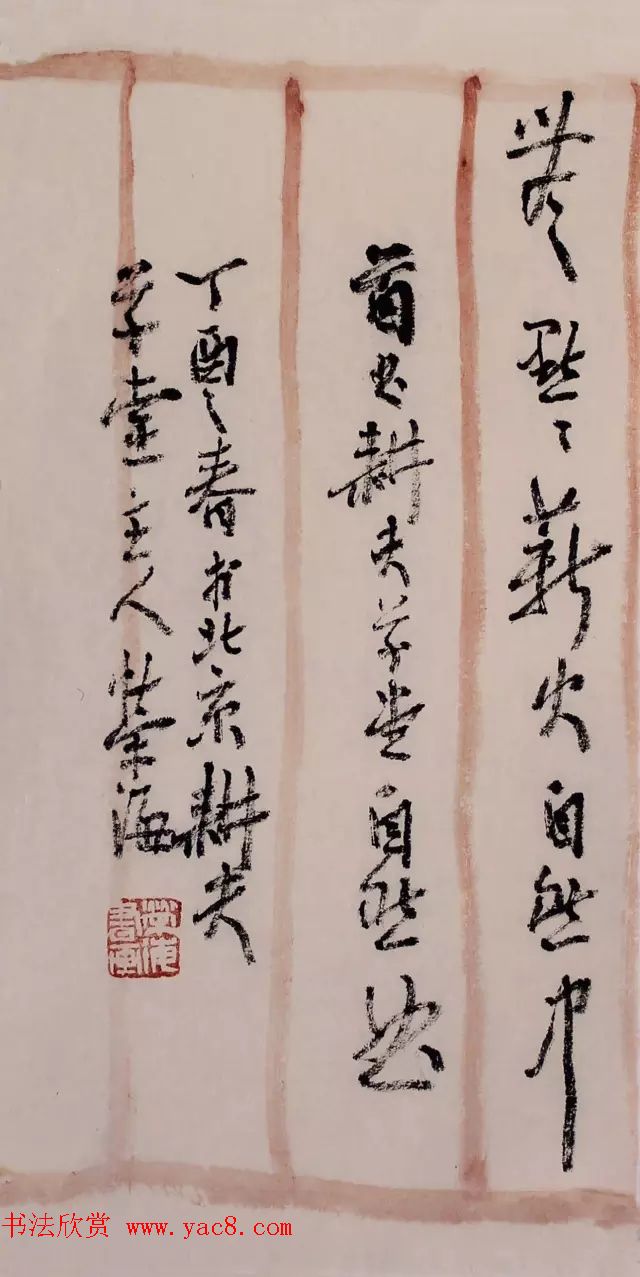 點點薪火自然中
书耕夫草堂自然
丁酉之春於北京耕夫
草堂主人榮海
书法欣赏 www.yac8.com